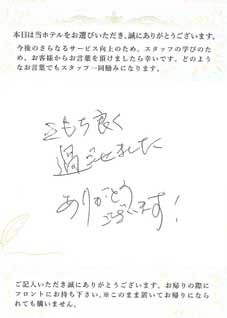 本日は当ホテルをお選びいただき、誠にありがとうございます。
今後のさらなるサービス向上のため、スタッフの学びのため、お客様からお言葉を頂けましたら幸いです。どのようなお言葉でもスタッフ一同励みになります。
きもち良く
過ごせました
ありがとう
ございます!
ご記入いただき誠にありがとうございます。お帰りの際に
フロントにお持ち下さい。※このまま置いてお帰りになられても構いません。